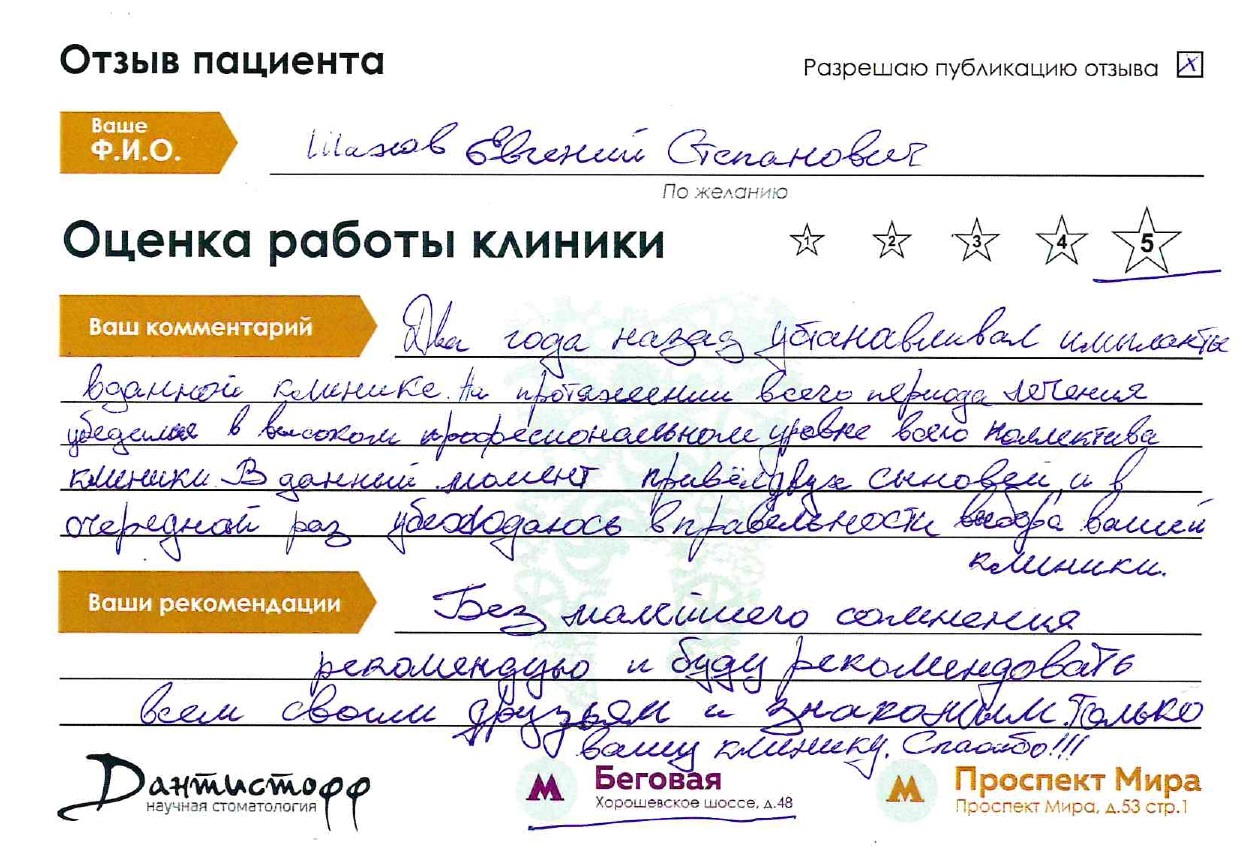 Отзыв пациента
Разрешаю публикацию отзыва X
Ваше
Ф.И.О.
Евгений Степанович
По желанию
Оценка работы клиники
1 2 3 4 5
Ваш комментарий
Два года назад устанавливал импланты
в данной клинике. На протяжении всего периода лечения
убедился в высоком профессиональном уровне всего коллектива
клиники. В данный момент привёл двух сыновей, и в
очередной раз убеждаюсь в правельности выбора вашей
клиники.
Ваши рекомендации
Без малейшего сомнения
рекомендую и буду рекомендовать
всем своим друзьям и знакомым только
вашу клинику. Спасибо!!!
Дантистофф
научная стоматология
М Беговая
Хорошевское шоссе, д.48
М Проспект Мира
Проспект Мира, д.53 стр.1